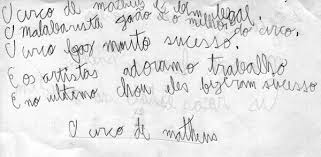 O circo de matheus é bem legal.
O malabarista joão é o melhor do circo.
O circo fez muito sucesso.
E os artistas adoram o trabalho
E no ultimo chou eles fizeram sucesso
O circo de matheus